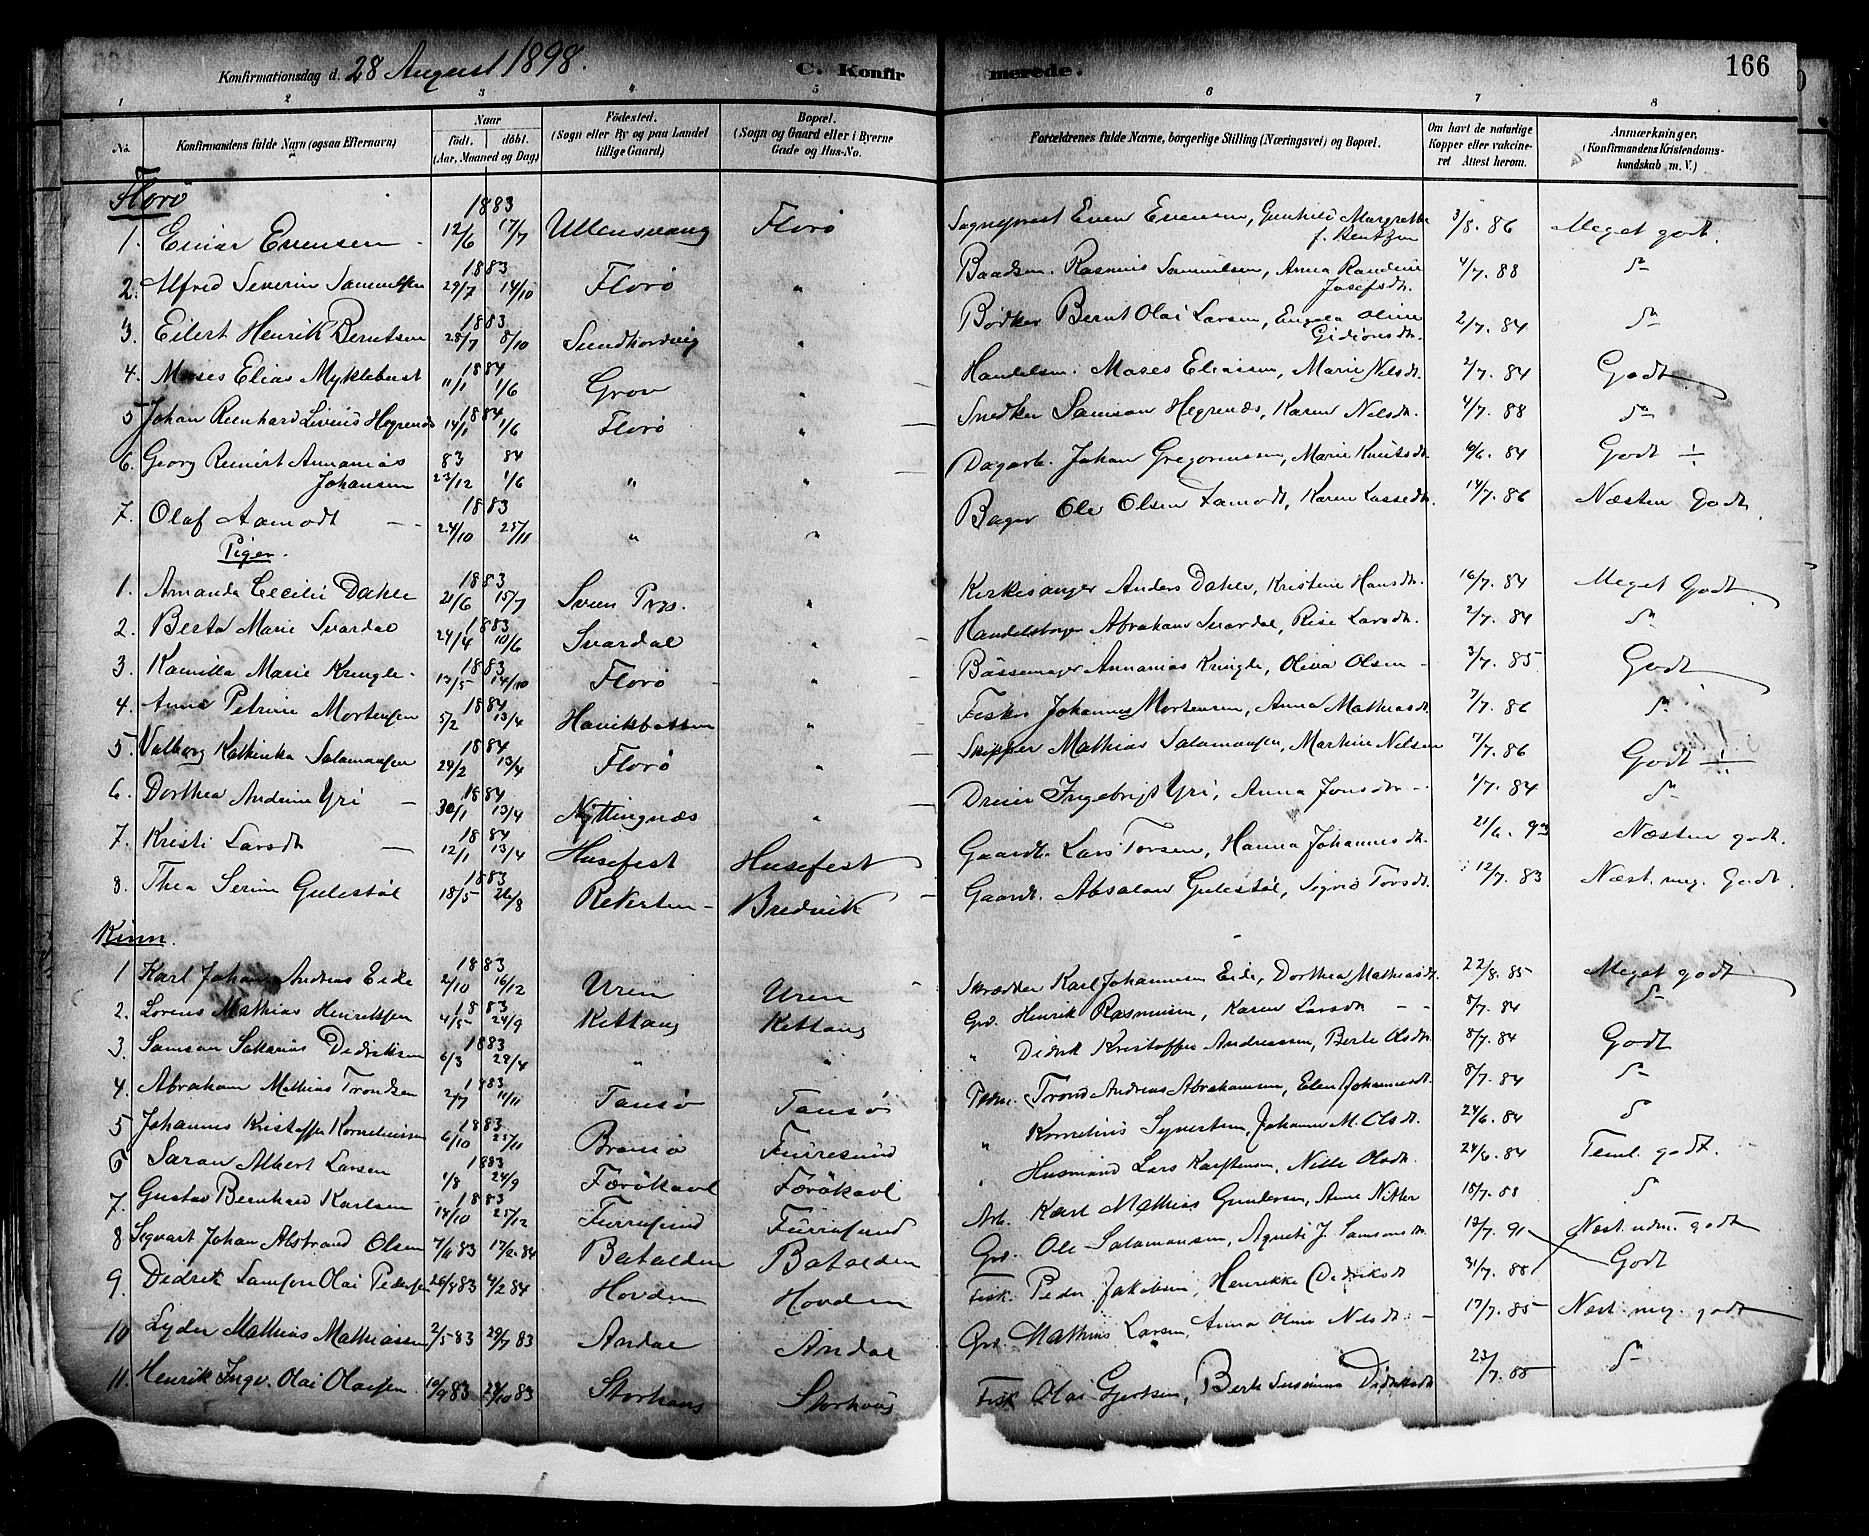 Konfirmationsdag d. 28 August 1898. C. Konfirmerede. 166
1 2 3 4 5 6 7 8
No. Konfirmandens fulde Navn (ogsaa Efternavn) Naar født. døbt. (Aar, Maaned og Dag) Fødested. (Sogn eller By og paa Landet tillige Gaard.) Bopæl. (Sogn og Gaard eller i Byerne Gade og Hus-No. Forældrenes fulde Navne, borgerlige Stilling (Næringsvei) og Bopæl. Om havt de naturlige Kopper eller vaccineret Attest herom. Anmærkninger. (Konfirmandens Kristendomskundskab m. V.)
Florø
1. Einar Evensen 1883 12/6 17/7 Ullensvang Florø Sogneprest Even Evensen, Gunhild Margrethe f. Bentzen 3/8. 86 Meget godt.
2. Alfred Severin Samuelsen 1883 29/7 14/10 Florø " Baadsm. Rasmus Samuelsen, Anna Randine Josefsdt. 4/7. 88 do
3. Eilert Henrik Berntsen 1883 28/7 8/10 Sundhordvig " Bødker Bernt Olai Larsen, Engela Oline Gidionsdt. 2/7. 84 do
4. Moses Elias Myklebust 1884 11/1 1/6 Grov " Handelsm. Moses Eliassen, Marie Nilsdt. 2/7. 84 Godt
5 Johan Reinhard Livius Hegrenæs 1884 14/1 1/6 Florø " Snedker Samson Hegrenæs, Karen Nilsdt. 4/7. 88 do
6. Georg Reinert Annanias Johansen 83 84 23/12 1/6 " " Dagarb. Johan Gregoriussen, Marie Knutsdt. 10/6. 84 Godt ÷
7. Olaf Aamodt 1883 24/10 25/11 " " Bager Ole Olsen Aamodt, Karen Lassedt. 14/7. 86 Næsten Godt.
Piger.
1. Amanda Cecilie Dahle 1883 21/6 15/7 Sveen Prgs. " Kirkesanger Anders Dahle, Kristine Hansdt. 16/7. 84 Meget Godt
2. Berta Marie Svardal 1883 24/4 10/6 Svardal " Handelsborger Abraham Svardal, Rise Larsdt. 2/7. 84 do
3. Kamilla Marie Kringle 1883 13/5 14/10 Florø " Bøssemager Annanias Kringle, Oliva Olsen 3/7. 85 Godt
4. Anna Petrine Mortensen 1884 5/2 13/4 Havikbotten " Fisker Johannes Mortensen, Anna Mathiasdt. 7/7. 86 do
5. Valborg Kathinka Salamonsen 1884 24/2 13/4 Florø " Skipper Mathias Salamonsen, Martine Nilsen 7/7. 86 Godt ÷
6. Dorthea Andrine Yri 1884 30/1 13/4 Nyttingnæs " Dreier Ingebrigt Yri, Anna Jonsdt. 1/7. 84 do
7. Kristi Larsdt 1884 12/1 13/4 Husefest Husefest Gaardb. Lars Torsen, Hanna Johannesdt. 21/6. 93 Næsten godt.
8. Thea Serine Gulestøl 1883 18/5 26/8 Reksten Bredvik Gaardb. Absalon Gulestøl, Sigrid Torsdt. 12/7. 83 Næst. meg. Godt.
Kinn.
1 Karl Johan Andreas Eide 1883 2/10 16/12 Uren Uren Skrædder Karl Johannesen Eide, Dorthea Mathiasdt. 22/8. 85 Meget godt
2. Lorens Mathias Henriksen 1883 4/5 24/9 Kittang Kittang Grd. Henrik Rasmussen, Karen Larsdt 8/7. 84 do
3. Samson Sakarias Didriksen 1883 6/3 29/4 " " " Didrik Kristoffer Andreassen, Berte Olsdt. 8/7. 84 Godt
4. Abraham Mathias Trondsen 1883 2/7 11/11 Tansø Tansø Trond Andreas Abrahamsen, Elen Johannesdt. 8/7. 84 do
5 Johannes Kristoffer Korneliussen 1883 6/10 25/11 Bransø Furresund " Kornelius Syvertsen, Johanne M. Olsdt. 24/6. 84 do
6 Saran Albert Larsen 1883 1/8 24/9 Færøkavl Førøkavl " Husmand Lars Karstensen, Nille Olsdt. 24/6. 84 Teml. godt.
7. Gustav Bernhard Karlsen 1883 14/10 25/12 Furresund Furresund Arb. Karl Mathias Gundersen, Anne Nitter 18/7. 88 do
8 Sigvart Johan Alstrand Olsen 7/6 83 17/2. 84 Batalden Batalden Grd. Ole Salamonsen, Agnete J. Samsonsdt. 12/7. 91 Næst. udm. godt
9. Didrik Samson Olai Pedersen 26/8 83 4/2 84 Hovden Hovden Fisk. Peder Jakobsen, Henrikke Didriksdt 31/7. 88 Godt
10 Lyder Mathias Mathiassen 2/5 83 29/7 83 Andal Andal Grd. Mathias Larsen, Anna Oline Nilsdt. 17/7. 85 Næst. meg. godt
11. Henrik Ingv. Olai Olaisen 10/9 83 28/10 83 Storhaug Storhaug Fisk Olai Gjertsen, Berte Susanna Didriksdt 23/7. 88 do